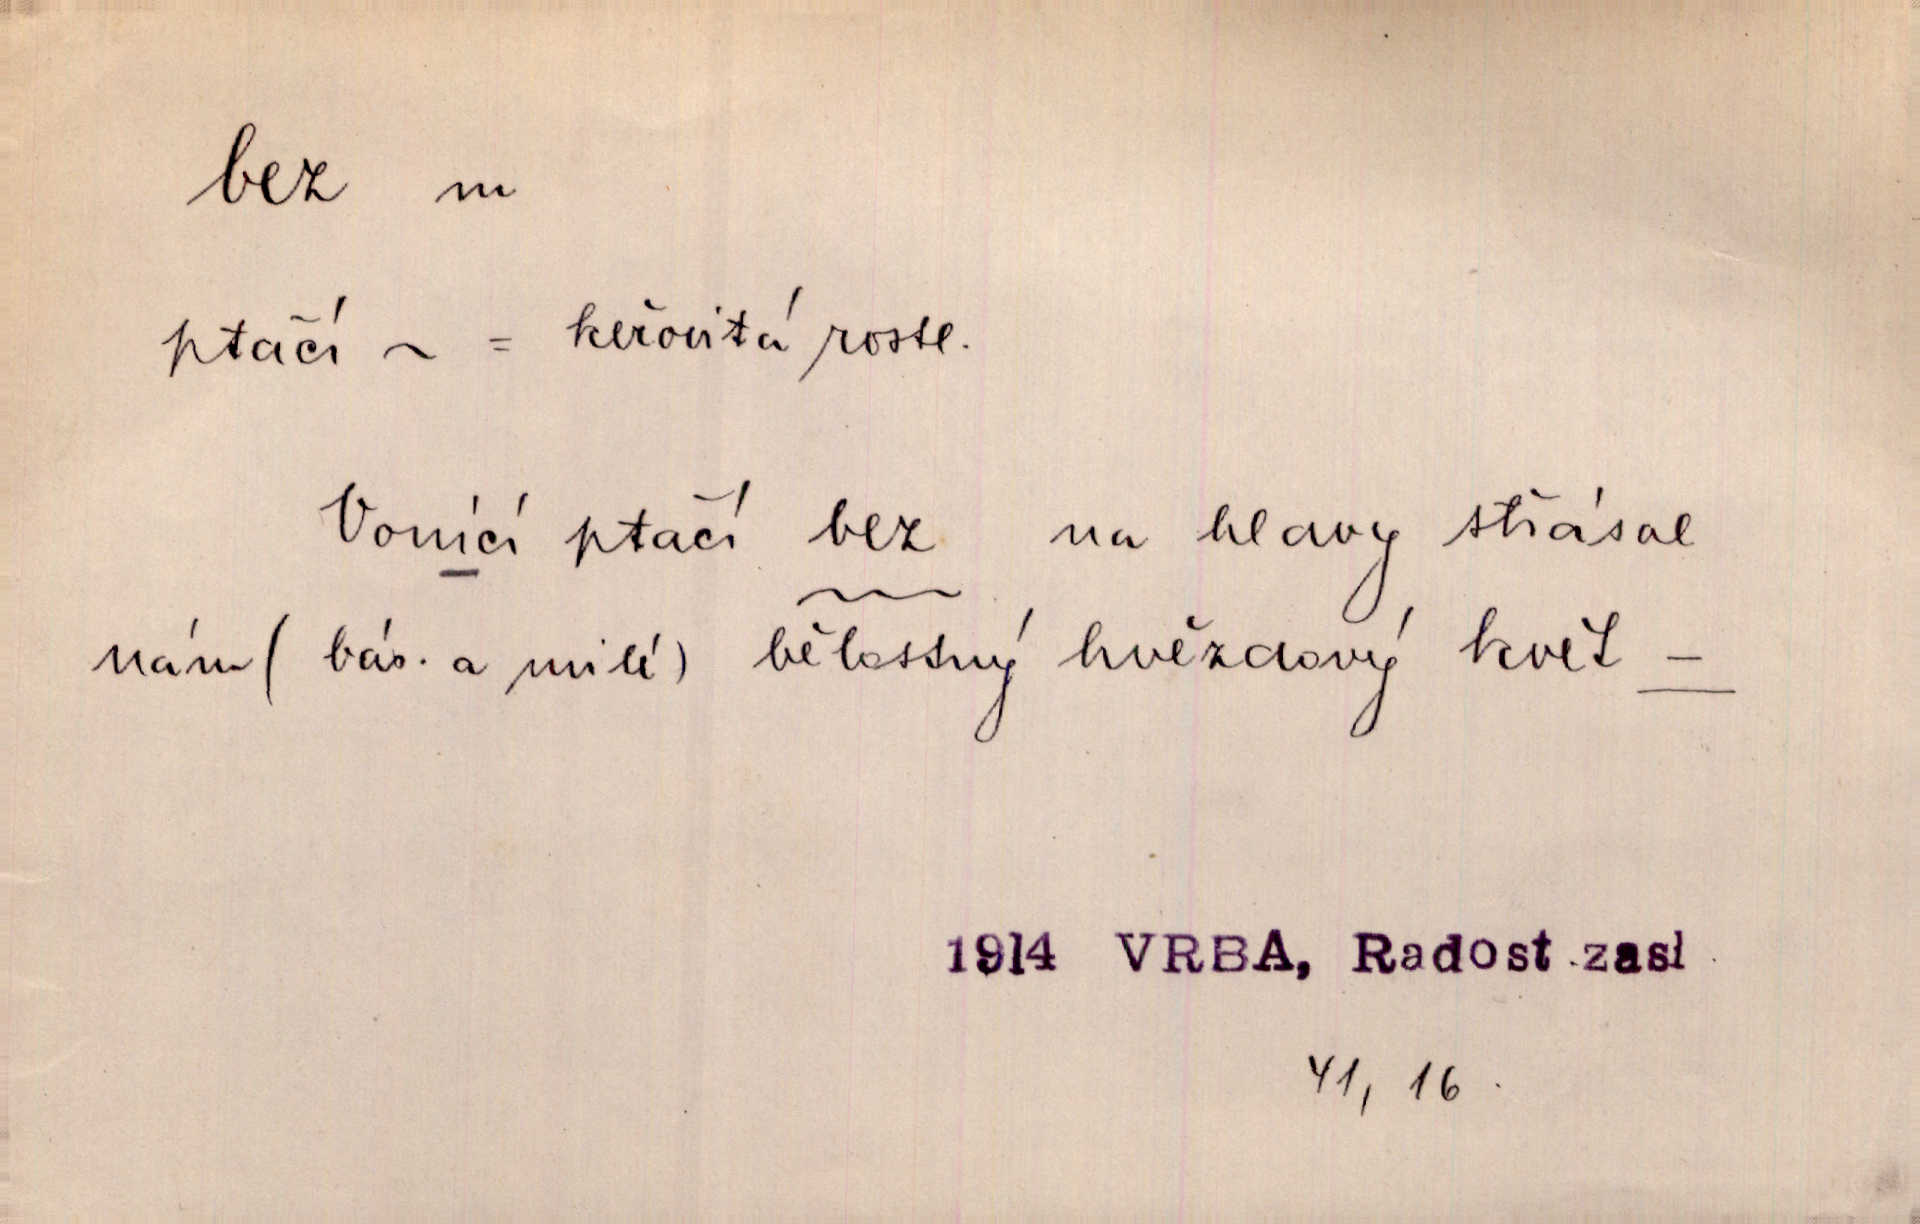 bez m
ptačí ~ = keřovitá rostl.
Vonící ptačí bez na hlavy střásal
nám (bás. a milé) bělostný hvězdový květ –
1914 VRBA, Radost zasl
41, 16.